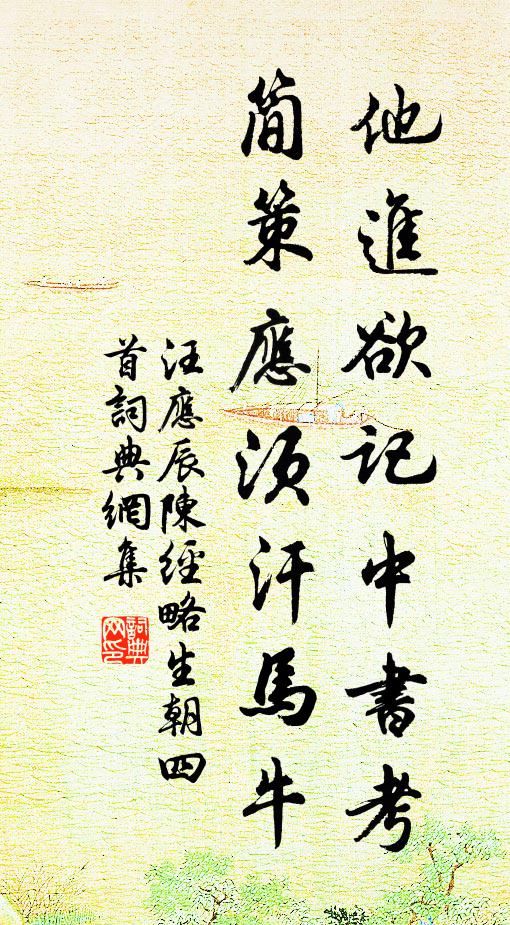 他進欲記中書考
簡策應須汗馬牛
汪應辰陳經略生朝四
首詞典網集
詞典
网印